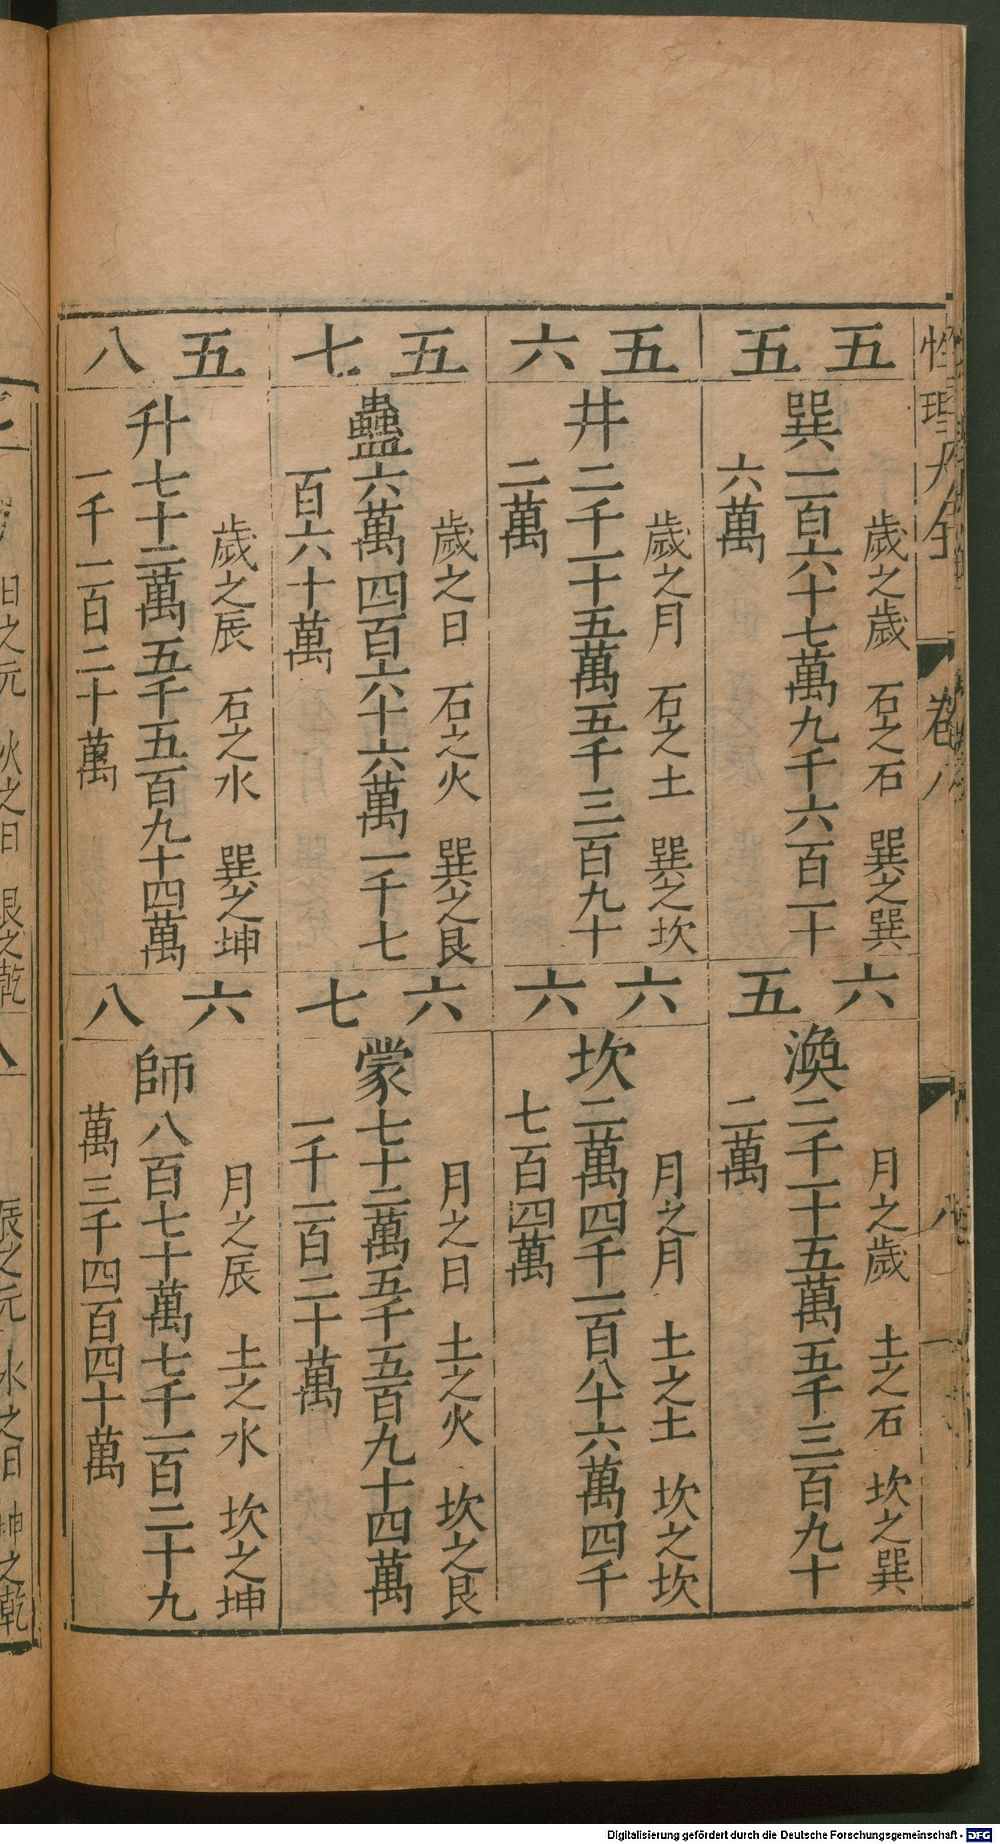 性理大全 卷八
五五
歲之歲 石之石 巽之巽
巽一百六十七萬九千六百一十
六萬
五六
歲之月 石之土 巽之坎
井二千一十五萬五千三百九十
二萬
五七
歲之日 石之火 巽之艮
蠱六萬四百六十六萬一千七
百六十萬
五八
歲之辰 石之水 巽之坤
升七十二萬五千五百九十四萬
一千一百二十萬
六五
月之歲 土之石 坎之巽
渙二千一十五萬五千三百九十
二萬
六六
月之月 土之土 坎之坎
坎二萬四千一百八十六萬四千
七百四萬
六七
月之日 土之火 坎之艮
蒙七十二萬五千五百九十四萬
一千一百二十萬
六八
月之辰 土之水 坎之坤
師八百七十萬七千一百二十九
萬三千四百四十萬
日之元 火之日 艮之乾
辰之元 水之日 坤之乾
Digitalisierung gefördert durch die Deutsche Forschungsgemeinschaft - DFG